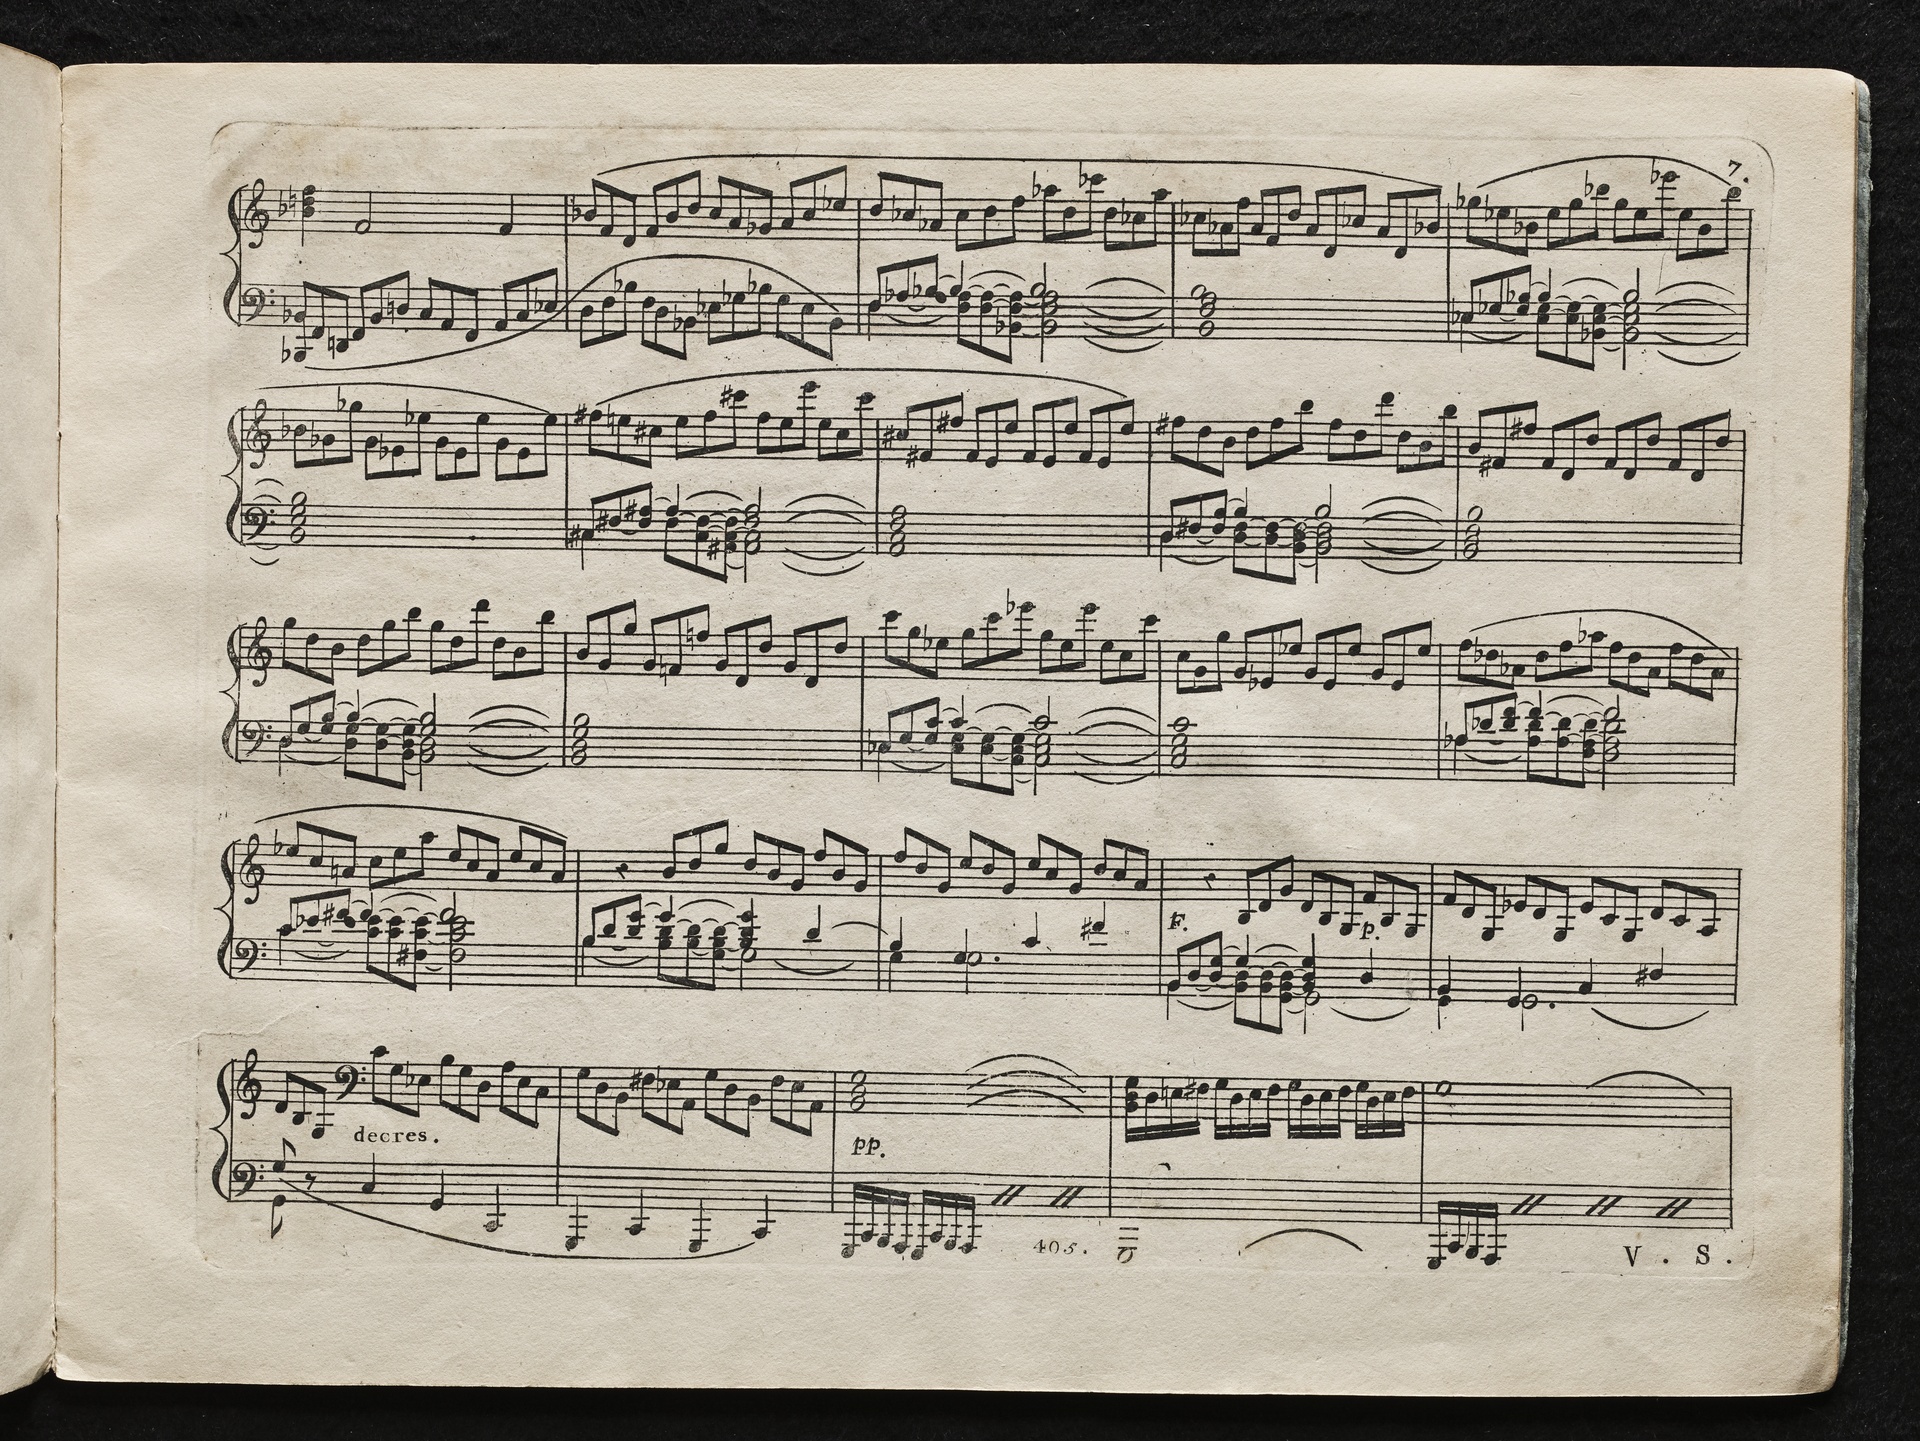 7.
F. p.
decres.
pp.
405.
V. S.